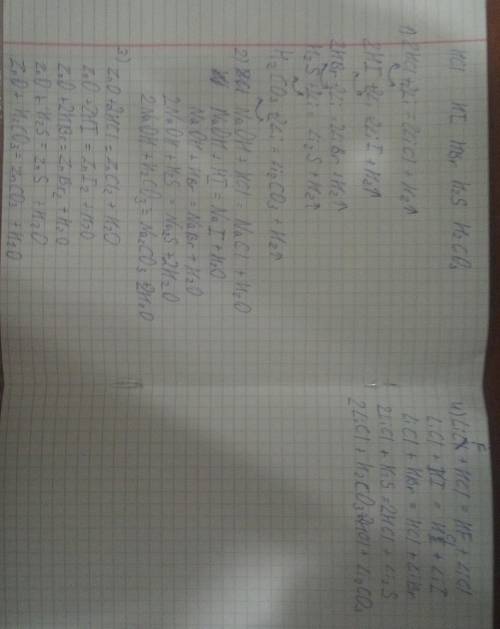 HCl HI HBr H₂S H₂CO₃
1) 2HCl + 2Li = 2LiCl + H₂↑
2HI + 2Li = 2LiI + H₂↑
2HBr + 2Li = 2LiBr + H₂↑
H₂S + 2Li = Li₂S + H₂↑
H₂CO₃ + 2Li = Li₂CO₃ + H₂↑
2) NaOH + HCl = NaCl + H₂O
NaOH + HI = NaI + H₂O
NaOH + HBr = NaBr + H₂O
2NaOH + H₂S = Na₂S + 2H₂O
2NaOH + H₂CO₃ = Na₂CO₃ + 2H₂O
3) ZnO + 2HCl = ZnCl₂ + H₂O
ZnO + 2HI = ZnI₂ + H₂O
ZnO + 2HBr = ZnBr₂ + H₂O
ZnO + H₂S = ZnS + H₂O
ZnO + H₂CO₃ = ZnCO₃ + H₂O
4) LiF + HCl = HF + LiCl
LiCl + HI = HCl + LiI
LiCl + HBr = HCl + LiBr
2LiCl + H₂S = 2HCl + Li₂S
2LiCl + H₂CO₃ = 2HCl + Li₂CO₃